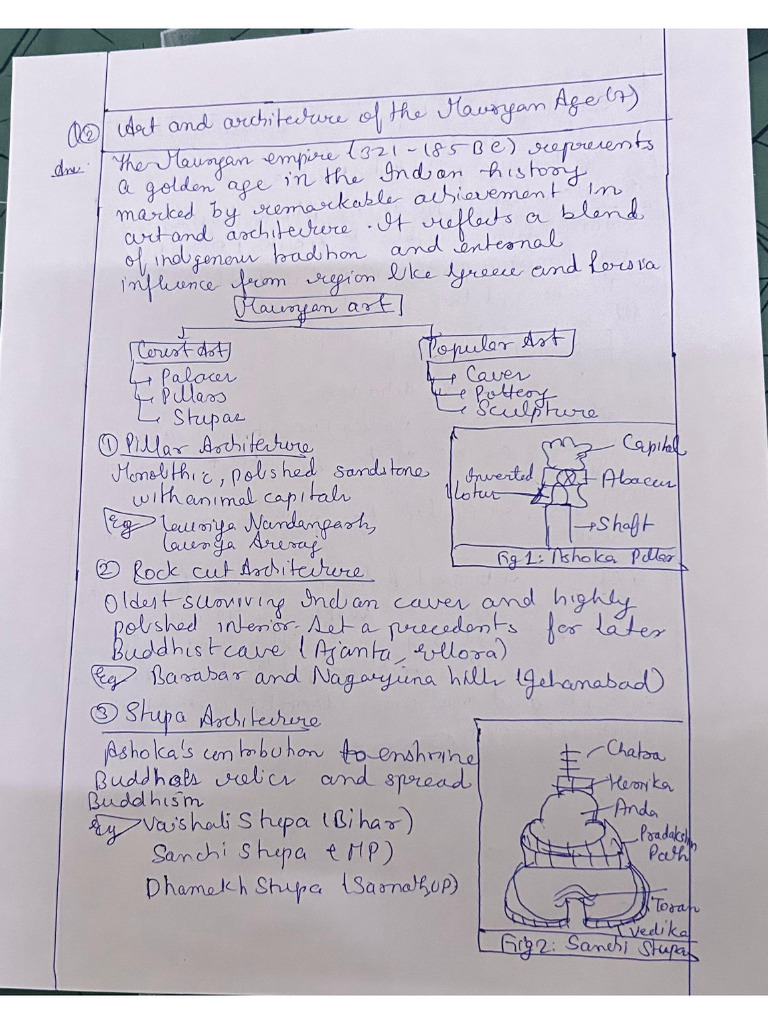 Q2 Art and architecture of the Mauryan Age (7)
Ans: The Mauryan empire (321-185 BC) represents
a golden age in the Indian history
marked by remarkable achievement in
art and architecture. It reflects a blend
of indgenous tradition and external
influence from region like Greece and Persia
Mauryan art
Court Art
Popular Art
Palaces
Pillars
Stupas
Caves
Pottery
Sculpture
① Pillar Architecture
Monolithic, polished sandstone
with animal capitals
Eg Lauriya Nandangarh,
Lauriya Areraj
Capital
Inverted
lotus
Abacus
Shaft
Fig 1: Ashoka Pillar
② Rock cut Architecture
Oldest surviving Indian caves and highly
polished interior. Set a precedents for later
Buddhist cave (Ajanta, Ellora)
Eg Barabar and Nagarjuna hills (Jehanabad)
③ Stupa Architecture
Ashoka's contribution to enshrine
Buddha's relics and spread
Buddhism
Eg Vaishali Stupa (Bihar)
Sanchi Stupa (MP)
Dhamekh Stupa (Sarnath, UP)
Chatra
Hermika
Anda
Pradakshin
Path
Toran
Vedika
Fig 2: Sanchi Stupa